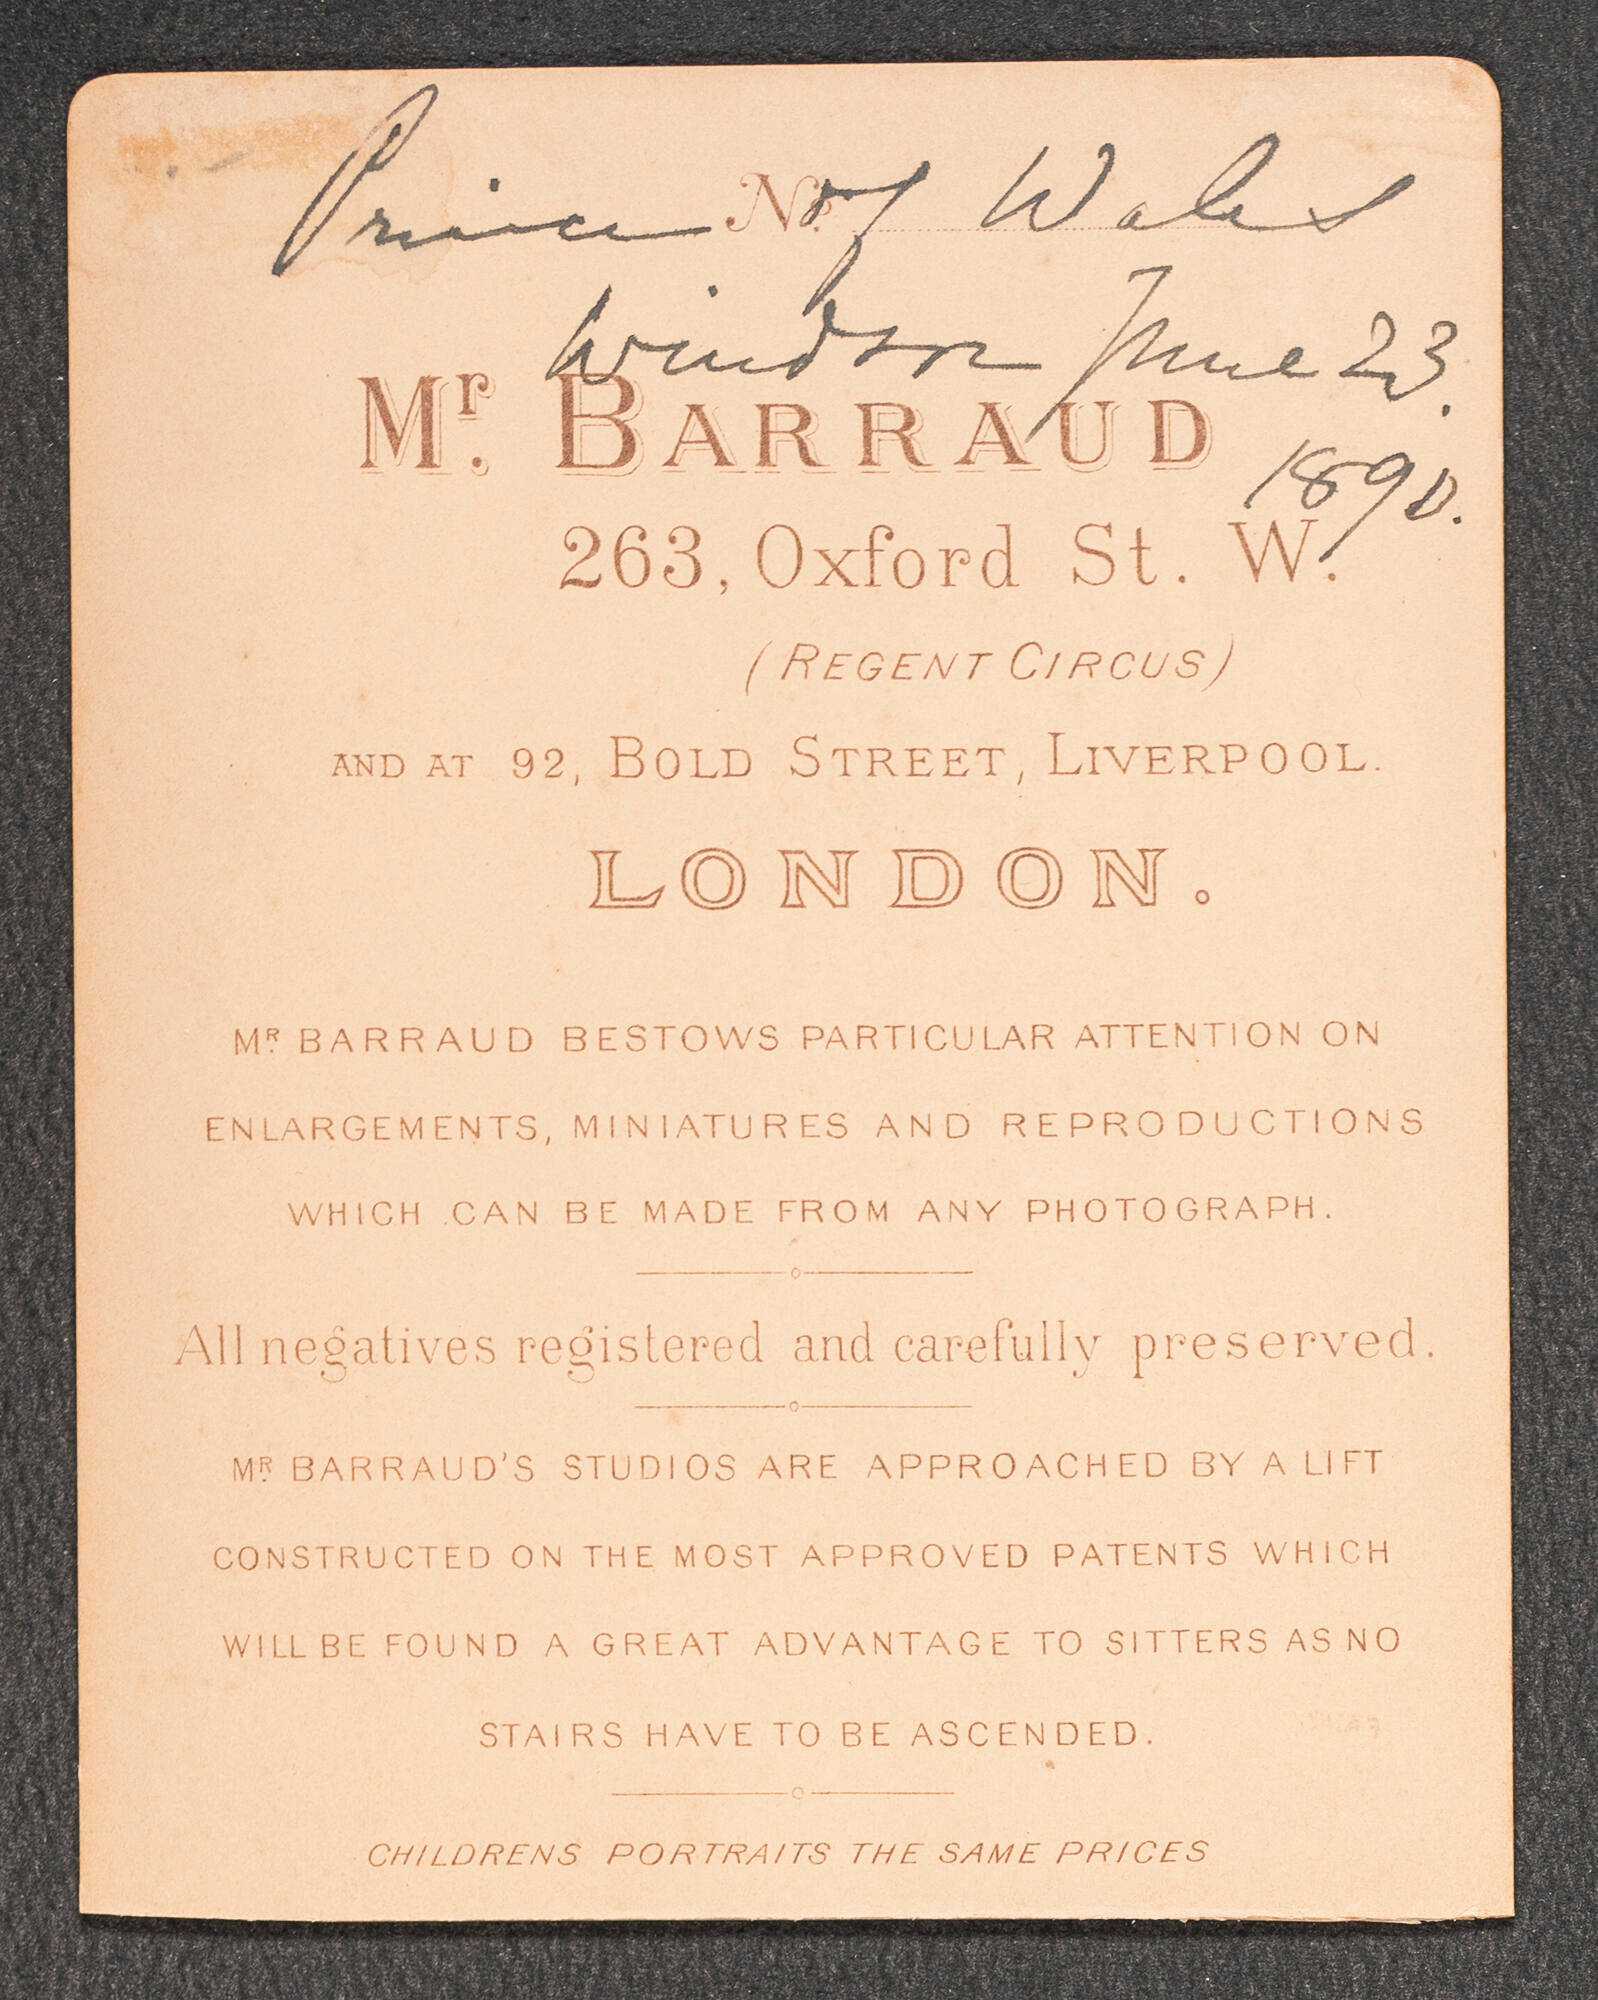 Prince of Wales
No.
Windsor June 23.
1890.
Mr. BARRAUD
263, Oxford St. W.
(REGENT CIRCUS)
AND AT 92, BOLD STREET, LIVERPOOL.
LONDON.
MR. BARRAUD BESTOWS PARTICULAR ATTENTION ON
ENLARGEMENTS, MINIATURES AND REPRODUCTIONS
WHICH CAN BE MADE FROM ANY PHOTOGRAPH.
All negatives registered and carefully preserved.
MR. BARRAUD'S STUDIOS ARE APPROACHED BY A LIFT
CONSTRUCTED ON THE MOST APPROVED PATENTS WHICH
WILL BE FOUND A GREAT ADVANTAGE TO SITTERS AS NO
STAIRS HAVE TO BE ASCENDED.
CHILDRENS PORTRAITS THE SAME PRICES